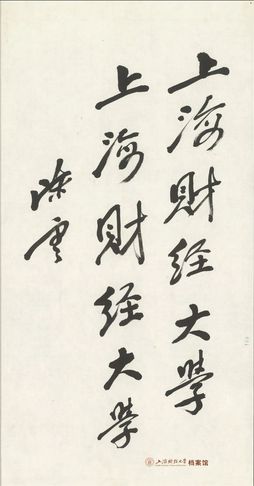 上海财经大學
上海财经大学
陈云
上海财经大学 档案馆